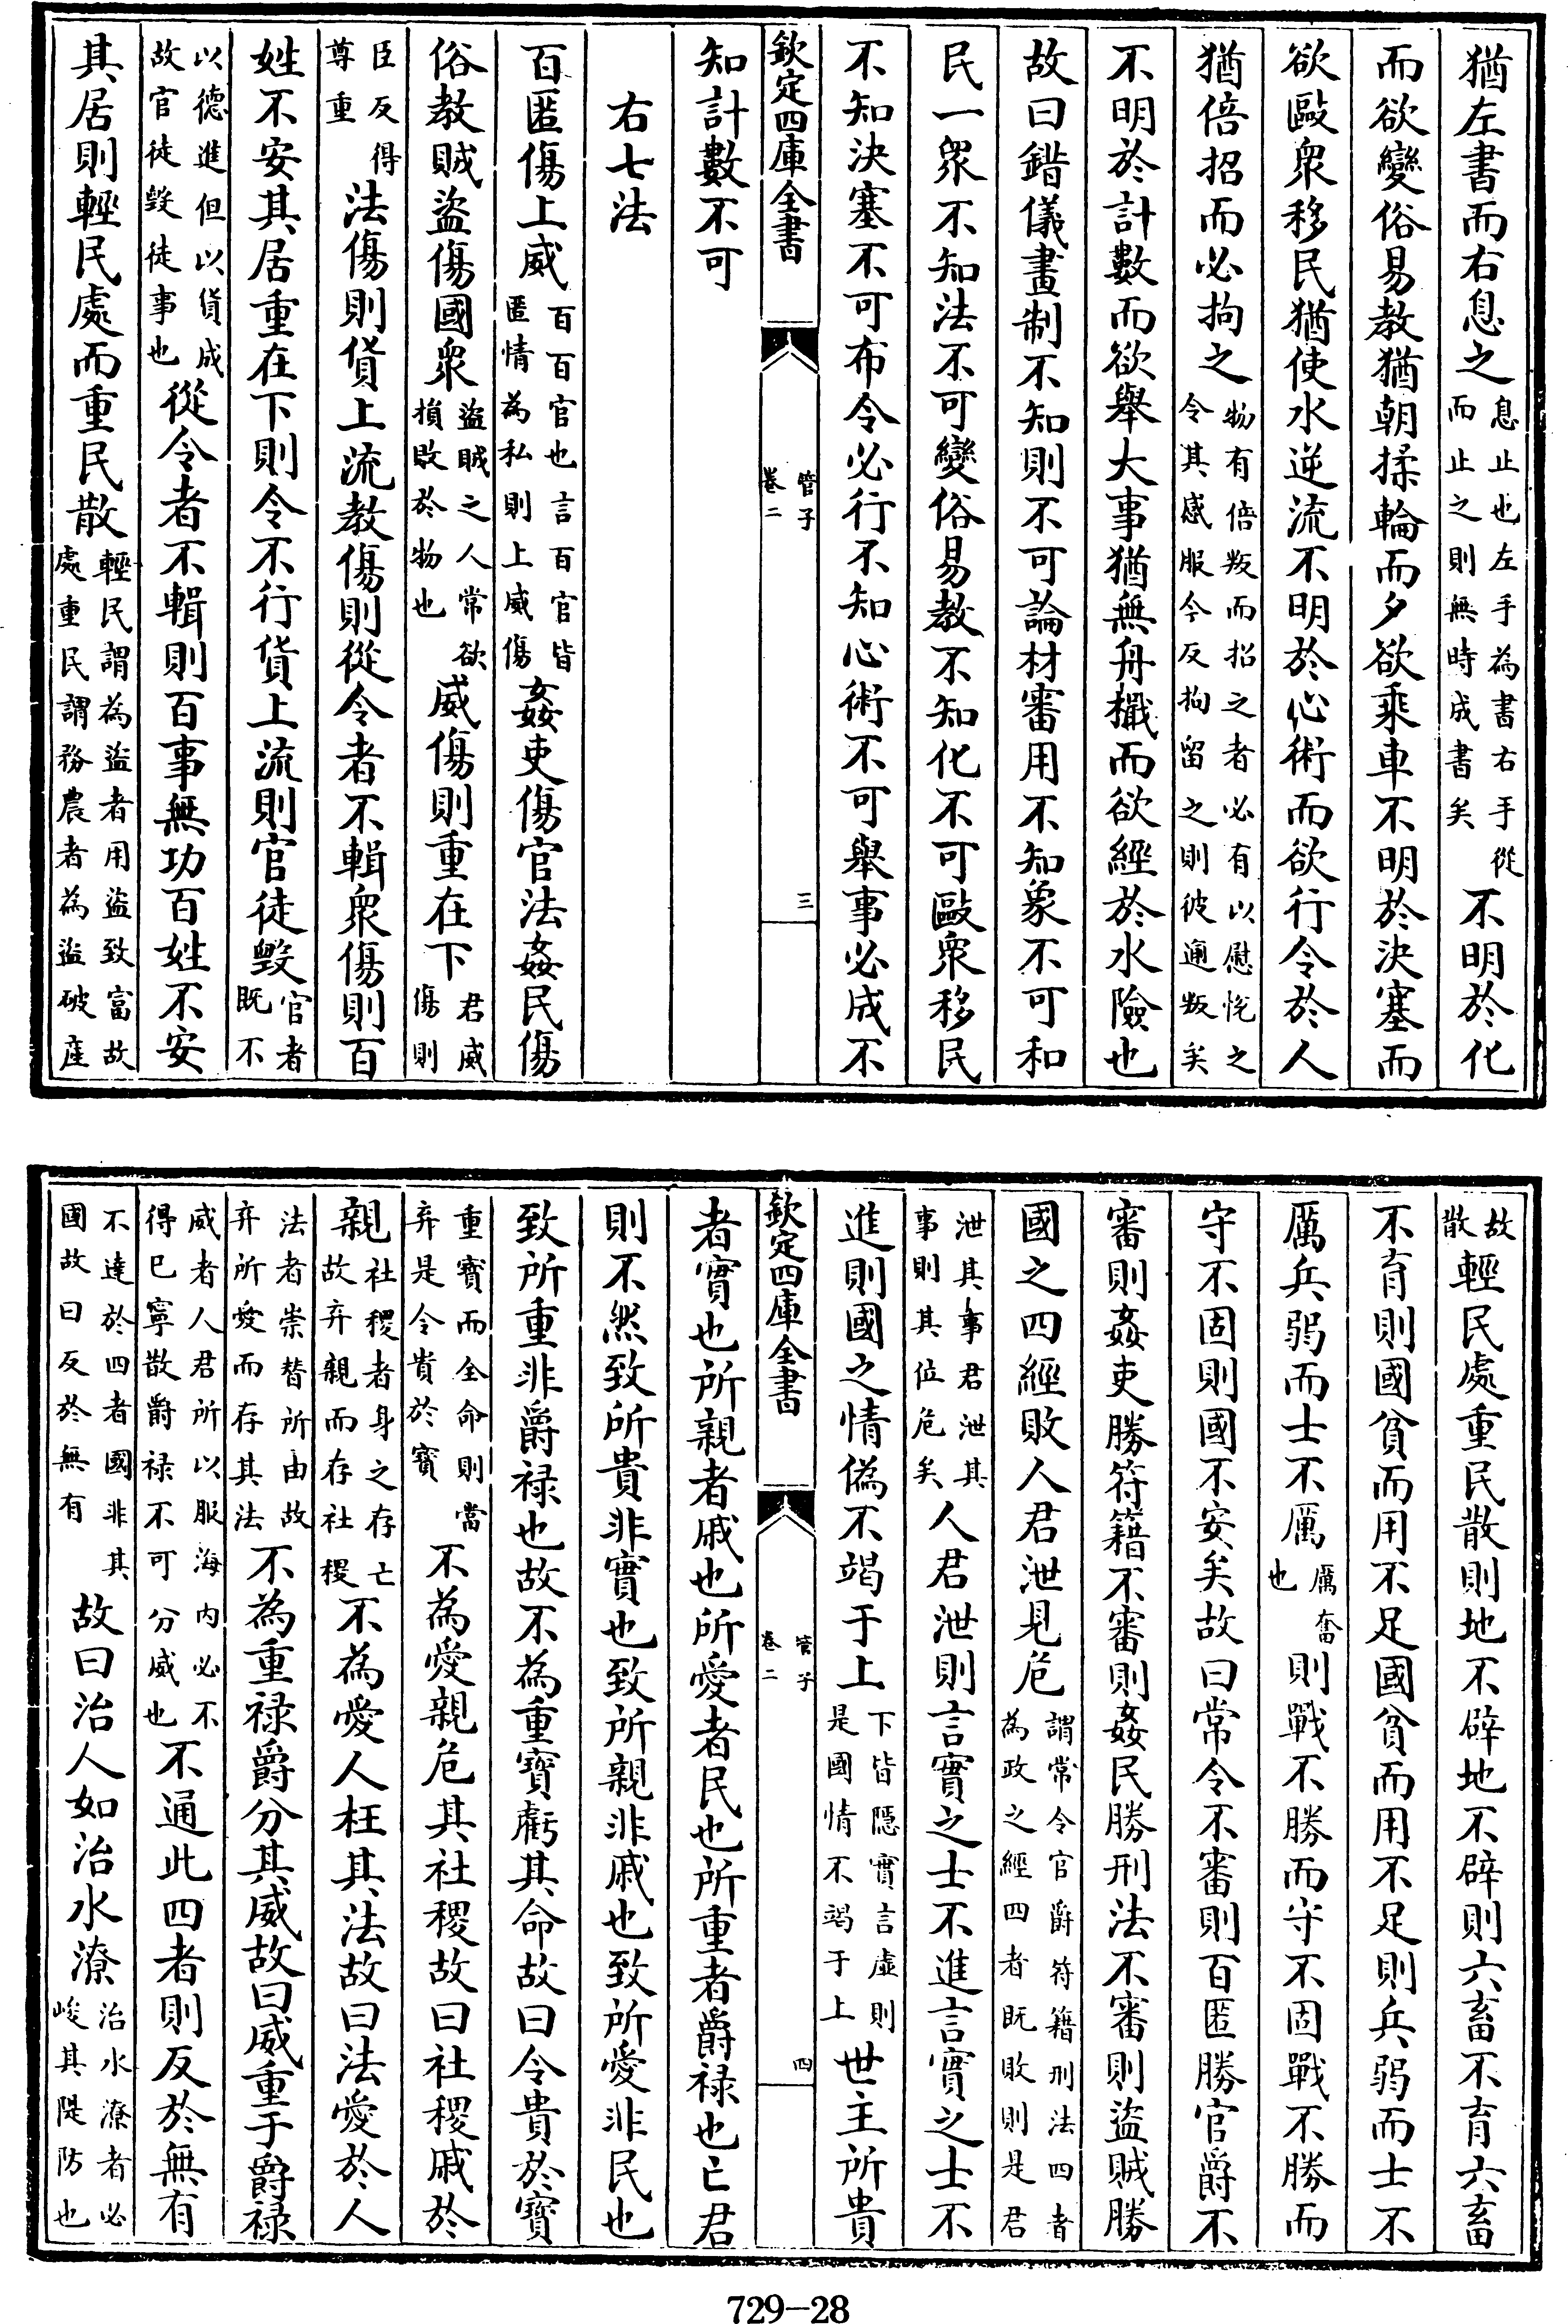 猶左書而右息之息止也左手為書右手從而止之則無時成書矣不明於化
而欲變俗易教猶朝揉輪而夕欲乘車不明於決塞而
欲毆衆移民猶使水逆流不明於心術而欲行令於人
猶倍招而必拘之物有倍叛而招之者必有以慰悅之令其感服今反拘留之則彼逾叛矣
不明於計數而欲舉大事猶無舟檝而欲經於水險也
故曰錯儀畫制不知則不可論材審用不知象不可和
民一衆不知法不可變俗易教不知化不可毆衆移民
不知決塞不可布令必行不知心術不可舉事必成不
欽定四庫全書 管子 卷二 三
知計數不可
右七法
百匿傷上威百百官也言百官皆匿情為私則上威傷姦吏傷官法姦民傷
俗教賊盜傷國衆盜賊之人常欲損敗於物也威傷則重在下君威傷則
臣反得尊重法傷則貨上流教傷則從令者不輯衆傷則百
姓不安其居重在下則令不行貨上流則官徒毀官者既不
以德進但以貨成故官徒毀徒事也從令者不輯則百事無功百姓不安
其居則輕民處而重民散輕民謂為盜者用盜致富故處重民謂務農者為盜破產
故散輕民處重民散則地不辟地不辟則六畜不育六畜
不育則國貧而用不足國貧而用不足則兵弱而士不
厲兵弱而士不厲厲奮也則戰不勝而守不固戰不勝而
守不固則國不安矣故曰常令不審則百匿勝官爵不
審則姦吏勝符籍不審則姦民勝刑法不審則盜賊勝
國之四經敗人君泄見危謂常令官爵符籍刑法四者為政之經四者既敗則是君
泄其事君泄其事則其位危矣人君泄則言實之士不進言實之士不
進則國之情偽不竭于上下皆隱實言虛則是國情不竭于上世主所貴
欽定四庫全書 管子 卷二 四
者實也所親者戚也所愛者民也所重者爵祿也亡君
則不然致所貴非實也致所親非戚也致所愛非民也
致所重非爵祿也故不為重寶虧其命故曰令貴於寶
重寶而全命則當弃是令貴於寶不為愛親危其社稷故曰社稷戚於
親社稷者身之存亡故弃親而存社稷不為愛人枉其法故曰法愛於人
法者崇替所由故弃所愛而存其法不為重祿爵分其威故曰威重于爵祿
威者人君所以服海內必不得已寧散爵祿不可分威也不通此四者則反於無有
不達於四者國非其國故曰反於無有故曰治人如治水潦治水潦者必峻其隄防也
729-28